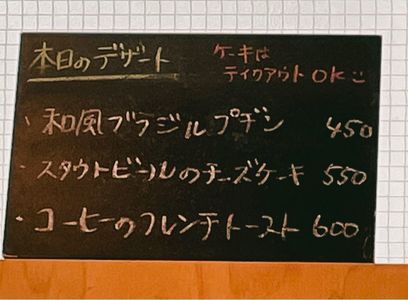 本日のデザート
ケーキは
テイクアウトOK
・和風ブラジルプヂン 450
・スタウトビールのチーズケーキ 550
・コーヒーのフレンチトースト 600